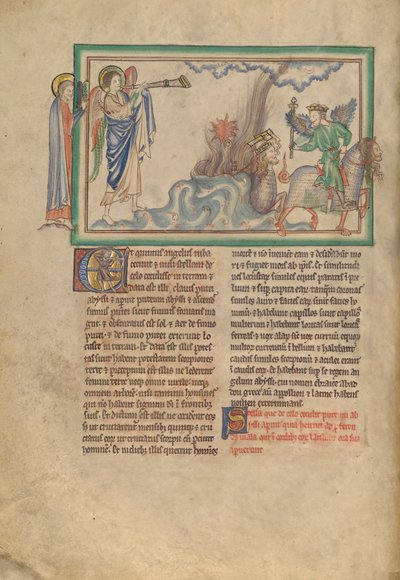 Et quintus angelus tuba
cecinit & uidi stellam de
celo cecidisse in terram &
data est illi clauis putei
abyssi & aperuit puteum abyssi & ascend
fumus putei sicut fumus fornacis ma
gne & obscuratus est sol & aer de fumo
putei & de fumo putei exierunt lo
custe in terram & data est illis potes
tas sicut habent potestatem scorpiones
terre & preceptum est illis ne lederent
fenum terre neque omne uiride neque
omnem arborem nisi tantum homines
qui non habent signum dei in frontibus
suis. Et dictum est illis ne occiderent eos
sed ut cruciarent mensibus quinque & cru
ciatus eorum ut cruciatus scorpii cum percutit
hominem. Et in diebus illis querent homines
mortem & non inuenient eam & desiderabunt mo
ri & fugiet mors ab ipsis. Et similitudi
nes locustarum similes equis paratis in prelium
& super capita earum tanquam corone
similes auro & facies earum sicut facies ho
minum & habebant capillos sicut capillos
mulierum & habebant loricas sicut loricas
ferreas & uox alarum sicut uox curruum equorum
multorum currentium in bellum & habebant
caudas similes scorpionum & aculei erant
in caudis earum & habebant super se regem an
gelum abyssi cui nomen ebraice abad
don grece autem appollion & latine habens
nomen exterminans
Stella que de celo cecidit